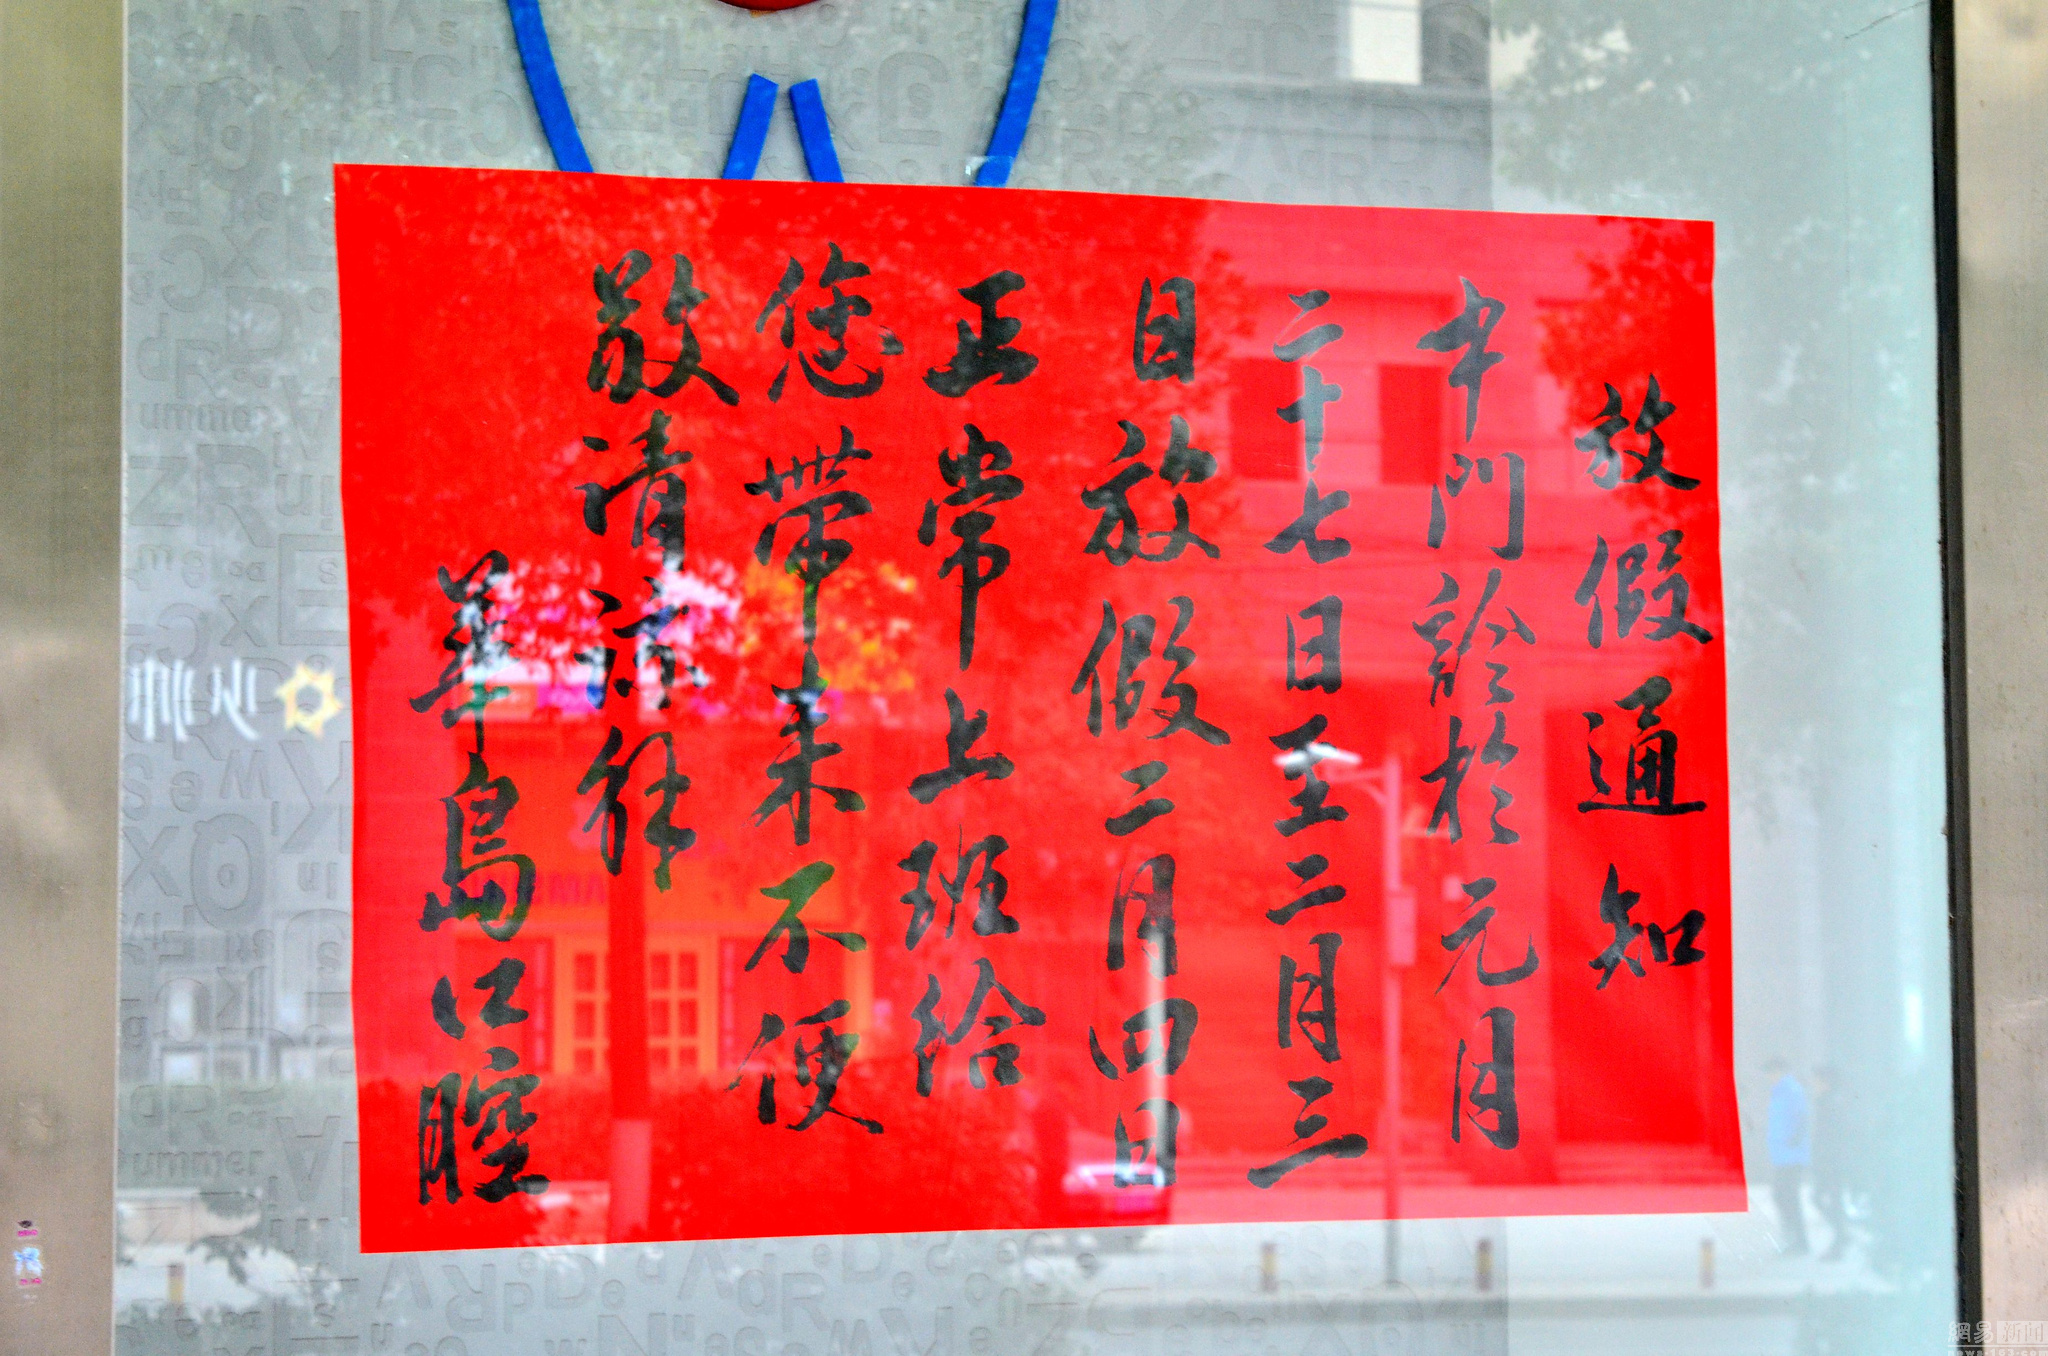 放假通知
本門診於元月
二十七日至二月三
日放假二月四日
正常上班給
您带来不便
敬请谅解
華島口腔
網易新闻
news.163.com